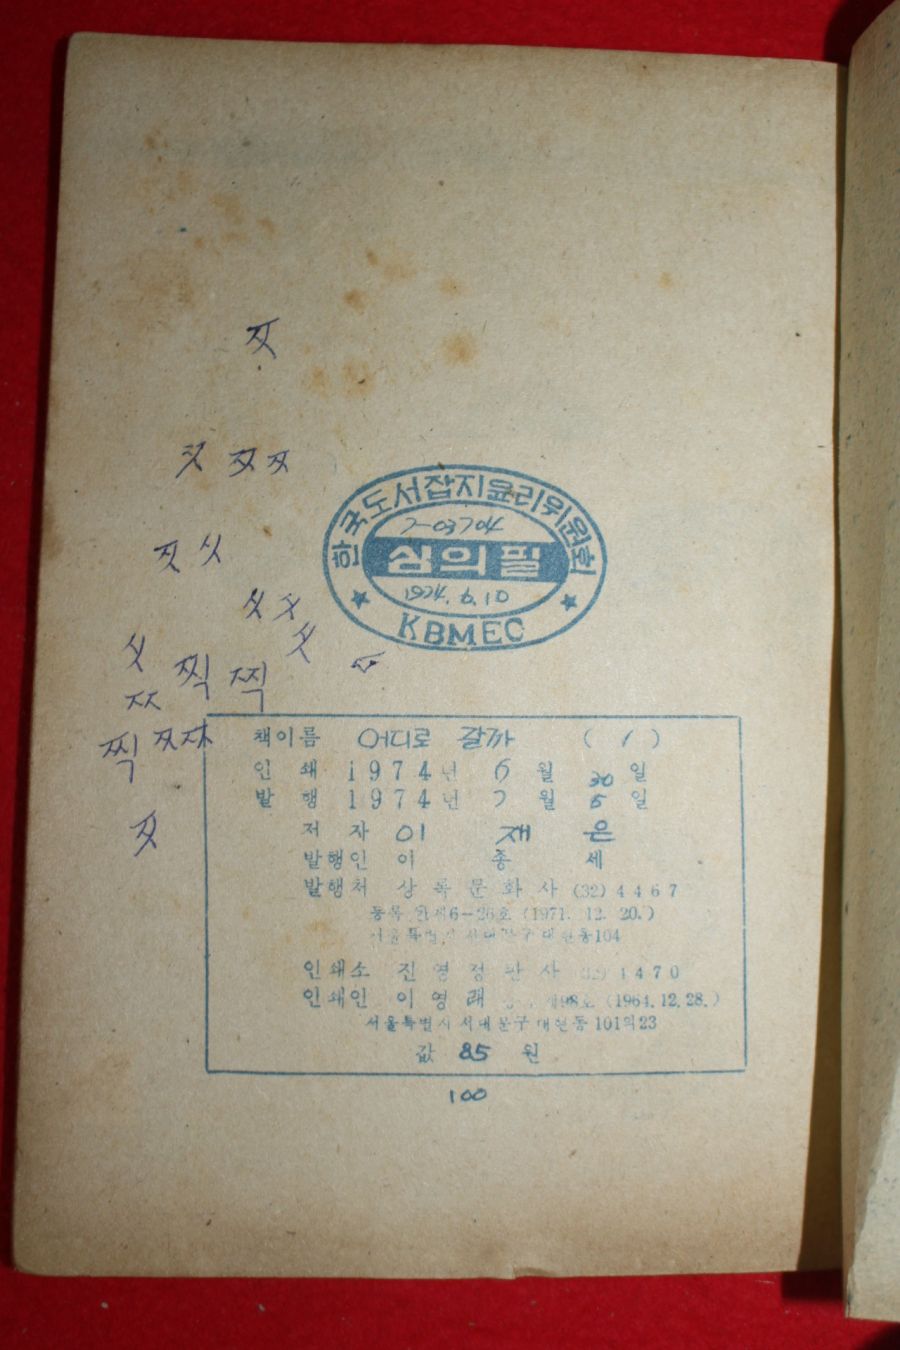 한국도서잡지윤리위원회
7-03704
심의필
1974. 6. 10
KBMEC
짜
찍 찍
찍
책이름 어디로 갈까 ( 1 )
인 쇄 1974년 6월 30일
발 행 1974년 7월 5일
저 자 이 재 은
발행인 이 종 세
발행처 상록문화사 (32) 4467
등록 제6-26호 (1971. 12. 20.)
서울특별시 서대문구 대현동 104
인쇄소 진영정판사 (32) 4470
인쇄인 이영래 제98호 (1964. 12. 28.)
서울특별시 서대문구 대현동 101의 23
값 85 원
100